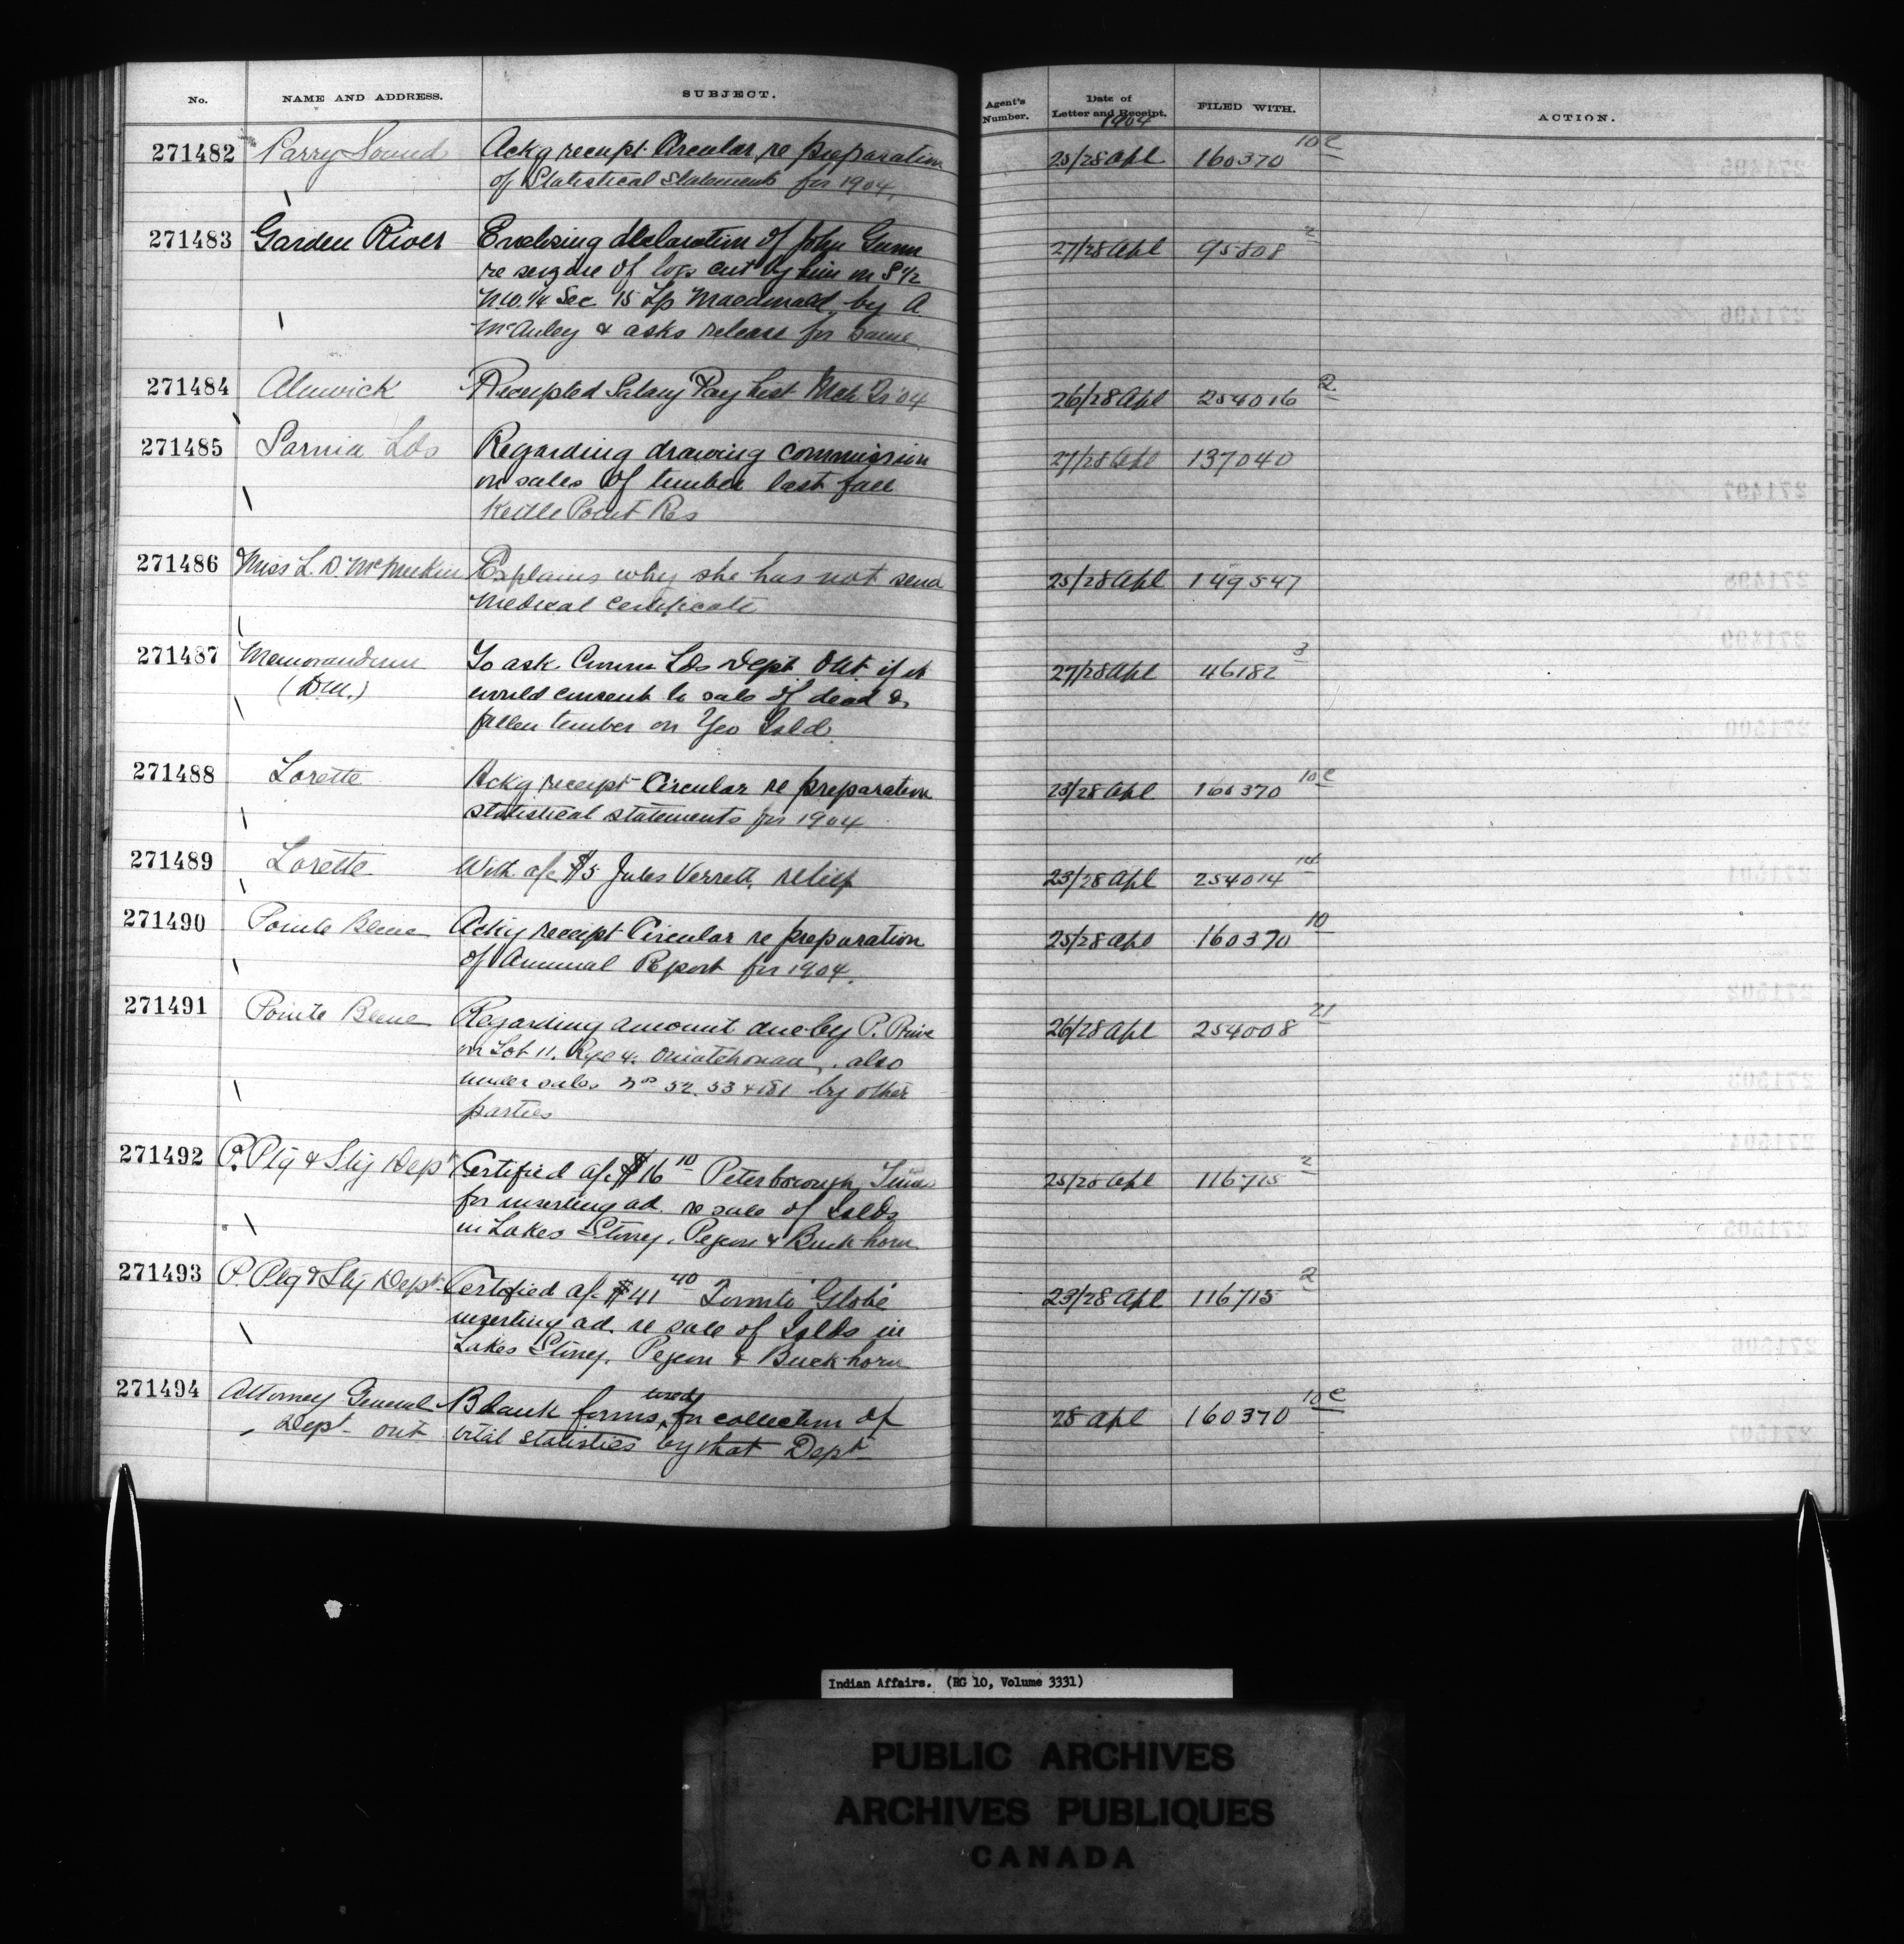 No. NAME AND ADDRESS. SUBJECT. Agent's Number. Date of Letter and Receipt. FILED WITH. ACTION.
1904
271482 Parry Sound Ackg receipt Circular re preparation 25/28 Apl 160370 10c
of Statistical Statements for 1904.
271483 Garden River Enclosing declaration of John Gunn 27/28 Apl 95808 2
re seizure of logs cut by him on S 1/2
N.W. 1/4 Sec 15 Tp Macdonald by A
McAuley & asks release for same
271484 Alnwick Receipted Salary Pay List Mch Qr '04 26/28 Apl 254016 2
271485 Sarnia Lds Regarding drawing commission 27/28 Apl 137040
on sales of timber last fall
Kettle Point Res
271486 Miss L. D. Explains why she has not send 25/28 Apl 149547
Medical Certificate
271487 Memorandum To ask Crown Lds Dept Ont if it 27/28 Apl 46182 3
would consent to sale of dead &
fallen timber on Yeo Isld.
271488 Lorette Ackg receipt Circular re preparation 23/28 Apl 160370 10c
statistical statements for 1904
271489 Lorette With a/c $5 Jules Verrett, relief 23/28 Apl 254014 14
271490 Pointe Bleue Ackg receipt Circular re preparation 25/28 Apl 160370 10
of Annual Report for 1904.
271491 Pointe Bleue Regarding amount due by P. 26/28 Apl 254008 21
on Lot 11. Rge 4. Ouiatchouan, also
under sales Nos 52. 53 & 181 by other
parties
271492 P. Ptg & Sty Dept Certified a/c $16 10 Peterborough Times 25/28 Apl 116715 2
for inserting ad. re sale of Islds
in Lakes Stoney, Pegeon & Buckhorn
271493 P. Ptg & Sty Dept Certified a/c $41 40 Toronto 'Globe' 23/28 Apl 116715 2
inserting ad. re sale of Islds in
Lakes Stoney, Pegeon & Buckhorn
271494 Attorney General Blank forms used for collection of 28 Apl 160370 10c
Dept Ont vital statistics by that Dept
Indian Affairs. (RG 10, Volume 3331)
PUBLIC ARCHIVES
ARCHIVES PUBLIQUES
CANADA